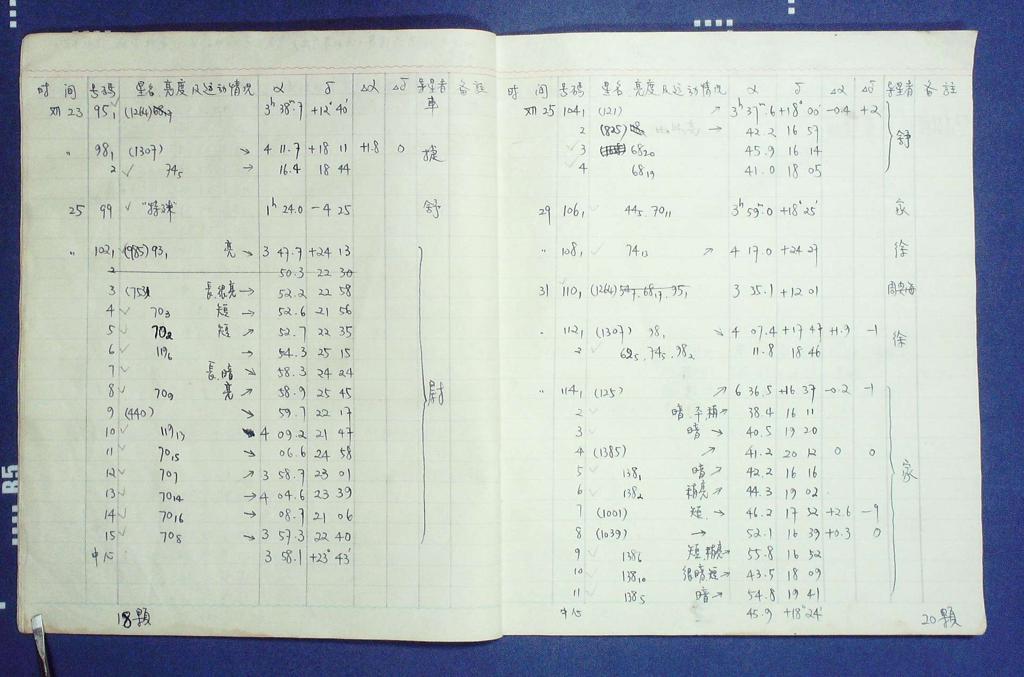 时 间 号码 星名 亮度及运动情况 α δ Δα Δδ 寻星者 备註
XII 23 95₁ (1264) 3ʰ 38ᵐ.7 +12° 40′ 車
" 98₁ (1307) ↘ 4 11.7 +18 11 +1.8 0 捷
2 ✓ 74₅ → 16.4 18 44
25 99 ✓ "特殊" 1ʰ 24.0 -4 25 舒
" 102₁ (985) 93₁ 亮 ↘ 3 47.7 +24 13
2 50.3 22 30
3 (753) 長很亮 → 52.2 22 58
4 ✓ 70₃ 短 → 52.6 21 56
5 ✓ 70₂ 短 ↘ 52.7 22 35
6 ✓ 119₆ → 54.3 25 15
7 ✓ 長.暗 58.3 24 24
8 ✓ 70₉ 亮 ↗ 58.9 25 45
9 (440) ↘ 59.7 22 17
10 ✓ 119₁₃ 4 09.2 21 47
11 ✓ 70₁₅ → 06.6 24 58
12 ✓ 70₇ ↗ 3 58.7 23 01
13 ✓ 70₁₄ → 4 04.6 23 39
14 ✓ 70₁₆ → 08.7 21 06
15 ✓ 70₈ ↘ 3 57.3 22 40
中心 3 58.1 +23° 43′
尉
18顆
时 间 号码 星名 亮度及运动情况 α δ Δα Δδ 寻星者 备註
XII 25 104₁ (121) ↗ 3ʰ 37ᵐ.6 +18° 00′ -0.4 +2
2 (825) → 42.2 16 57
3 68₂₀ 45.9 16 14
4 68₁₉ 41.0 18 05
舒
29 106₁ 44₅. 70₁₁ 3ʰ 59ᵐ.0 +18° 25′ 家
" 108₁ ✓ 74₁₃ ↗ 4 17.0 +24 27 徐
31 110₁ (1264) 3 35.1 +12 01
" 112₁ (1307) 98₁ ↘ 4 07.4 +17 47 +1.9 -1 徐
2 ✓ 62₅. 74₅. 98₂ 11.8 18 46
" 114₁ (125) ↗ 6 36.5 +16 37 -0.2 -1
2 ✓ → 38.4 16 11
3 ✓ 暗 → 40.5 19 20
4 (1385) ↗ 41.2 20 12 0 0
5 ✓ 138₁ 暗 ↗ 42.2 16 16
6 ✓ 138₂ 稍亮 ↗ 44.3 19 02
7 (1001) 短. ↘ 46.2 17 52 +2.6 -9
8 (1039) → 52.1 16 39 +0.3 0
9 ✓ 138₆ 短,稍亮 ↗ 55.8 16 52
10 ✓ 138₁₀ 很暗短 ↗ 43.5 18 09
11 ✓ 138₅ 暗 → 54.8 19 41
中心 45.9 +18° 24′
家
20顆
B5